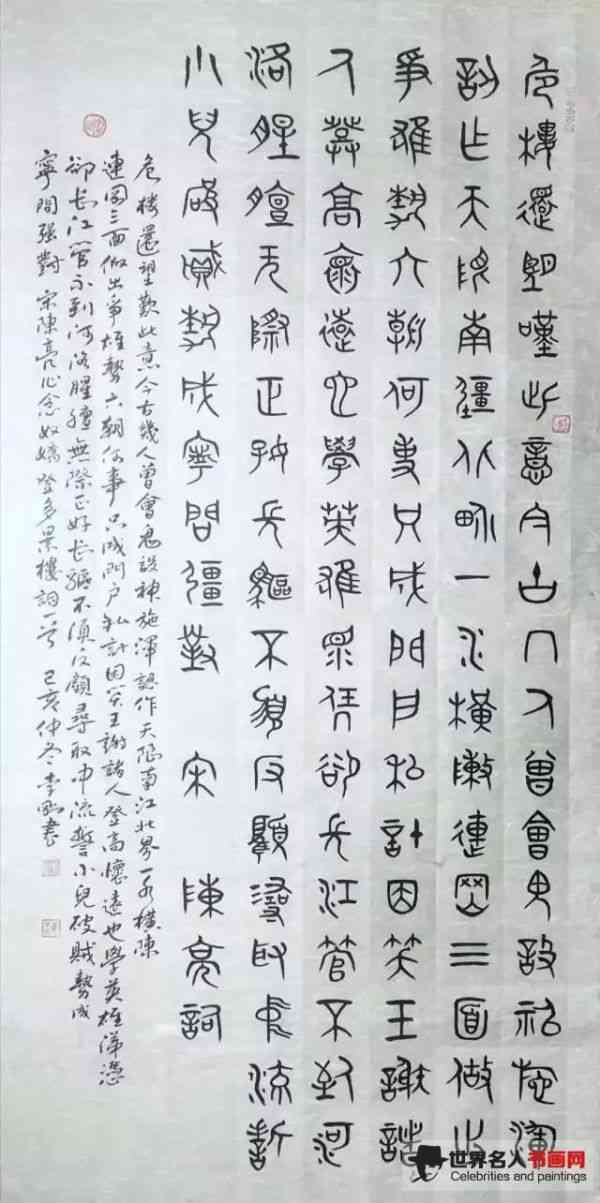 危樓還望嘆此意今古几人曾會鬼設神施渾
認作天限南疆北界一水橫陳連岡三面做出
爭雄勢六朝何事只成門戶私計因笑王謝諸
人登高懷遠也學英雄涕憑卻長江管不到河
洛腥膻無際正好長驅不須反顧尋取中流誓
小兒破賊勢成寧問疆對 宋 陳亮詞
危樓還望歎此意今古幾人曾會鬼設神施渾認作天限南江北界一水橫陳
連岡三面做出爭雄勢六朝何事只成門戶私計因笑王謝諸人登高懷遠也學英雄涕憑
卻長江管不到河洛腥膻無際正好長驅不須反顧尋取中流誓小兒破賊勢成
寧問强對 宋陳亮念奴嬌登多景樓詞一首 己亥仲冬李書
世界名人书画网
Celebrities and paintings